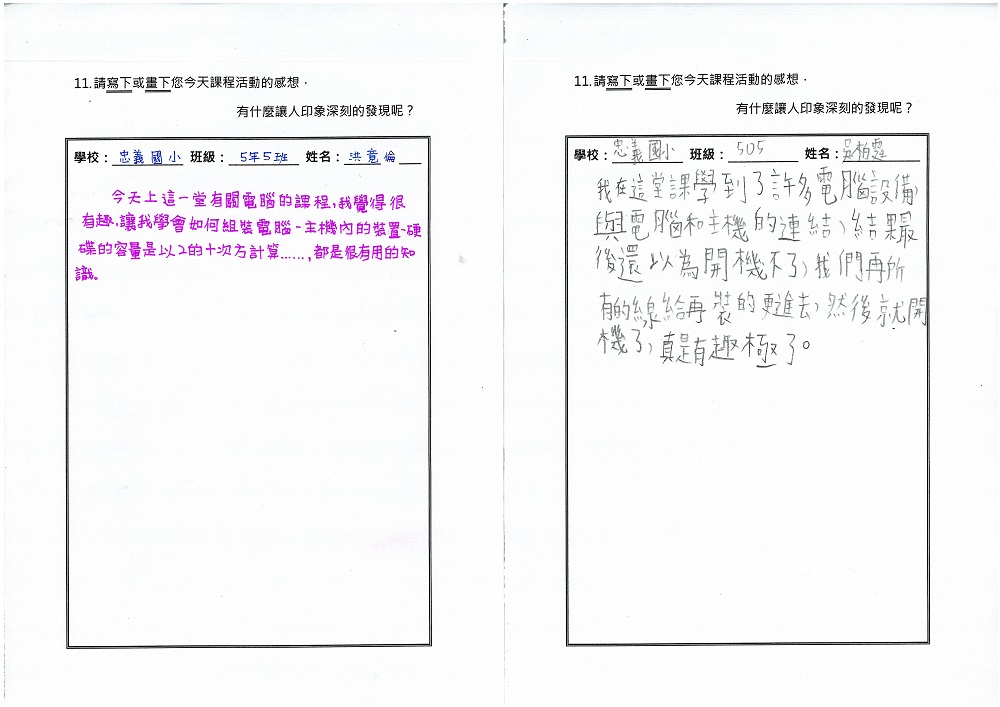 11.請寫下或畫下您今天課程活動的感想，
有什麼讓人印象深刻的發現呢？
學校：忠義國小 班級：5年5班 姓名：洪竟倫
今天上這一堂有關電腦的課程，我覺得很
有趣，讓我學會如何組裝電腦-主機內的裝置-硬
碟的容量是以2的十次方計算……，都是很有用的知
識。
11.請寫下或畫下您今天課程活動的感想，
有什麼讓人印象深刻的發現呢？
學校：忠義國小 班級：505 姓名：吳柏霆
我在這堂課學到了許多電腦設備，
與電腦和主機的連結，結果最
後還以為開機不了，我們再所
有的線給再裝的更進去，然後就開
機了，真是有趣極了。